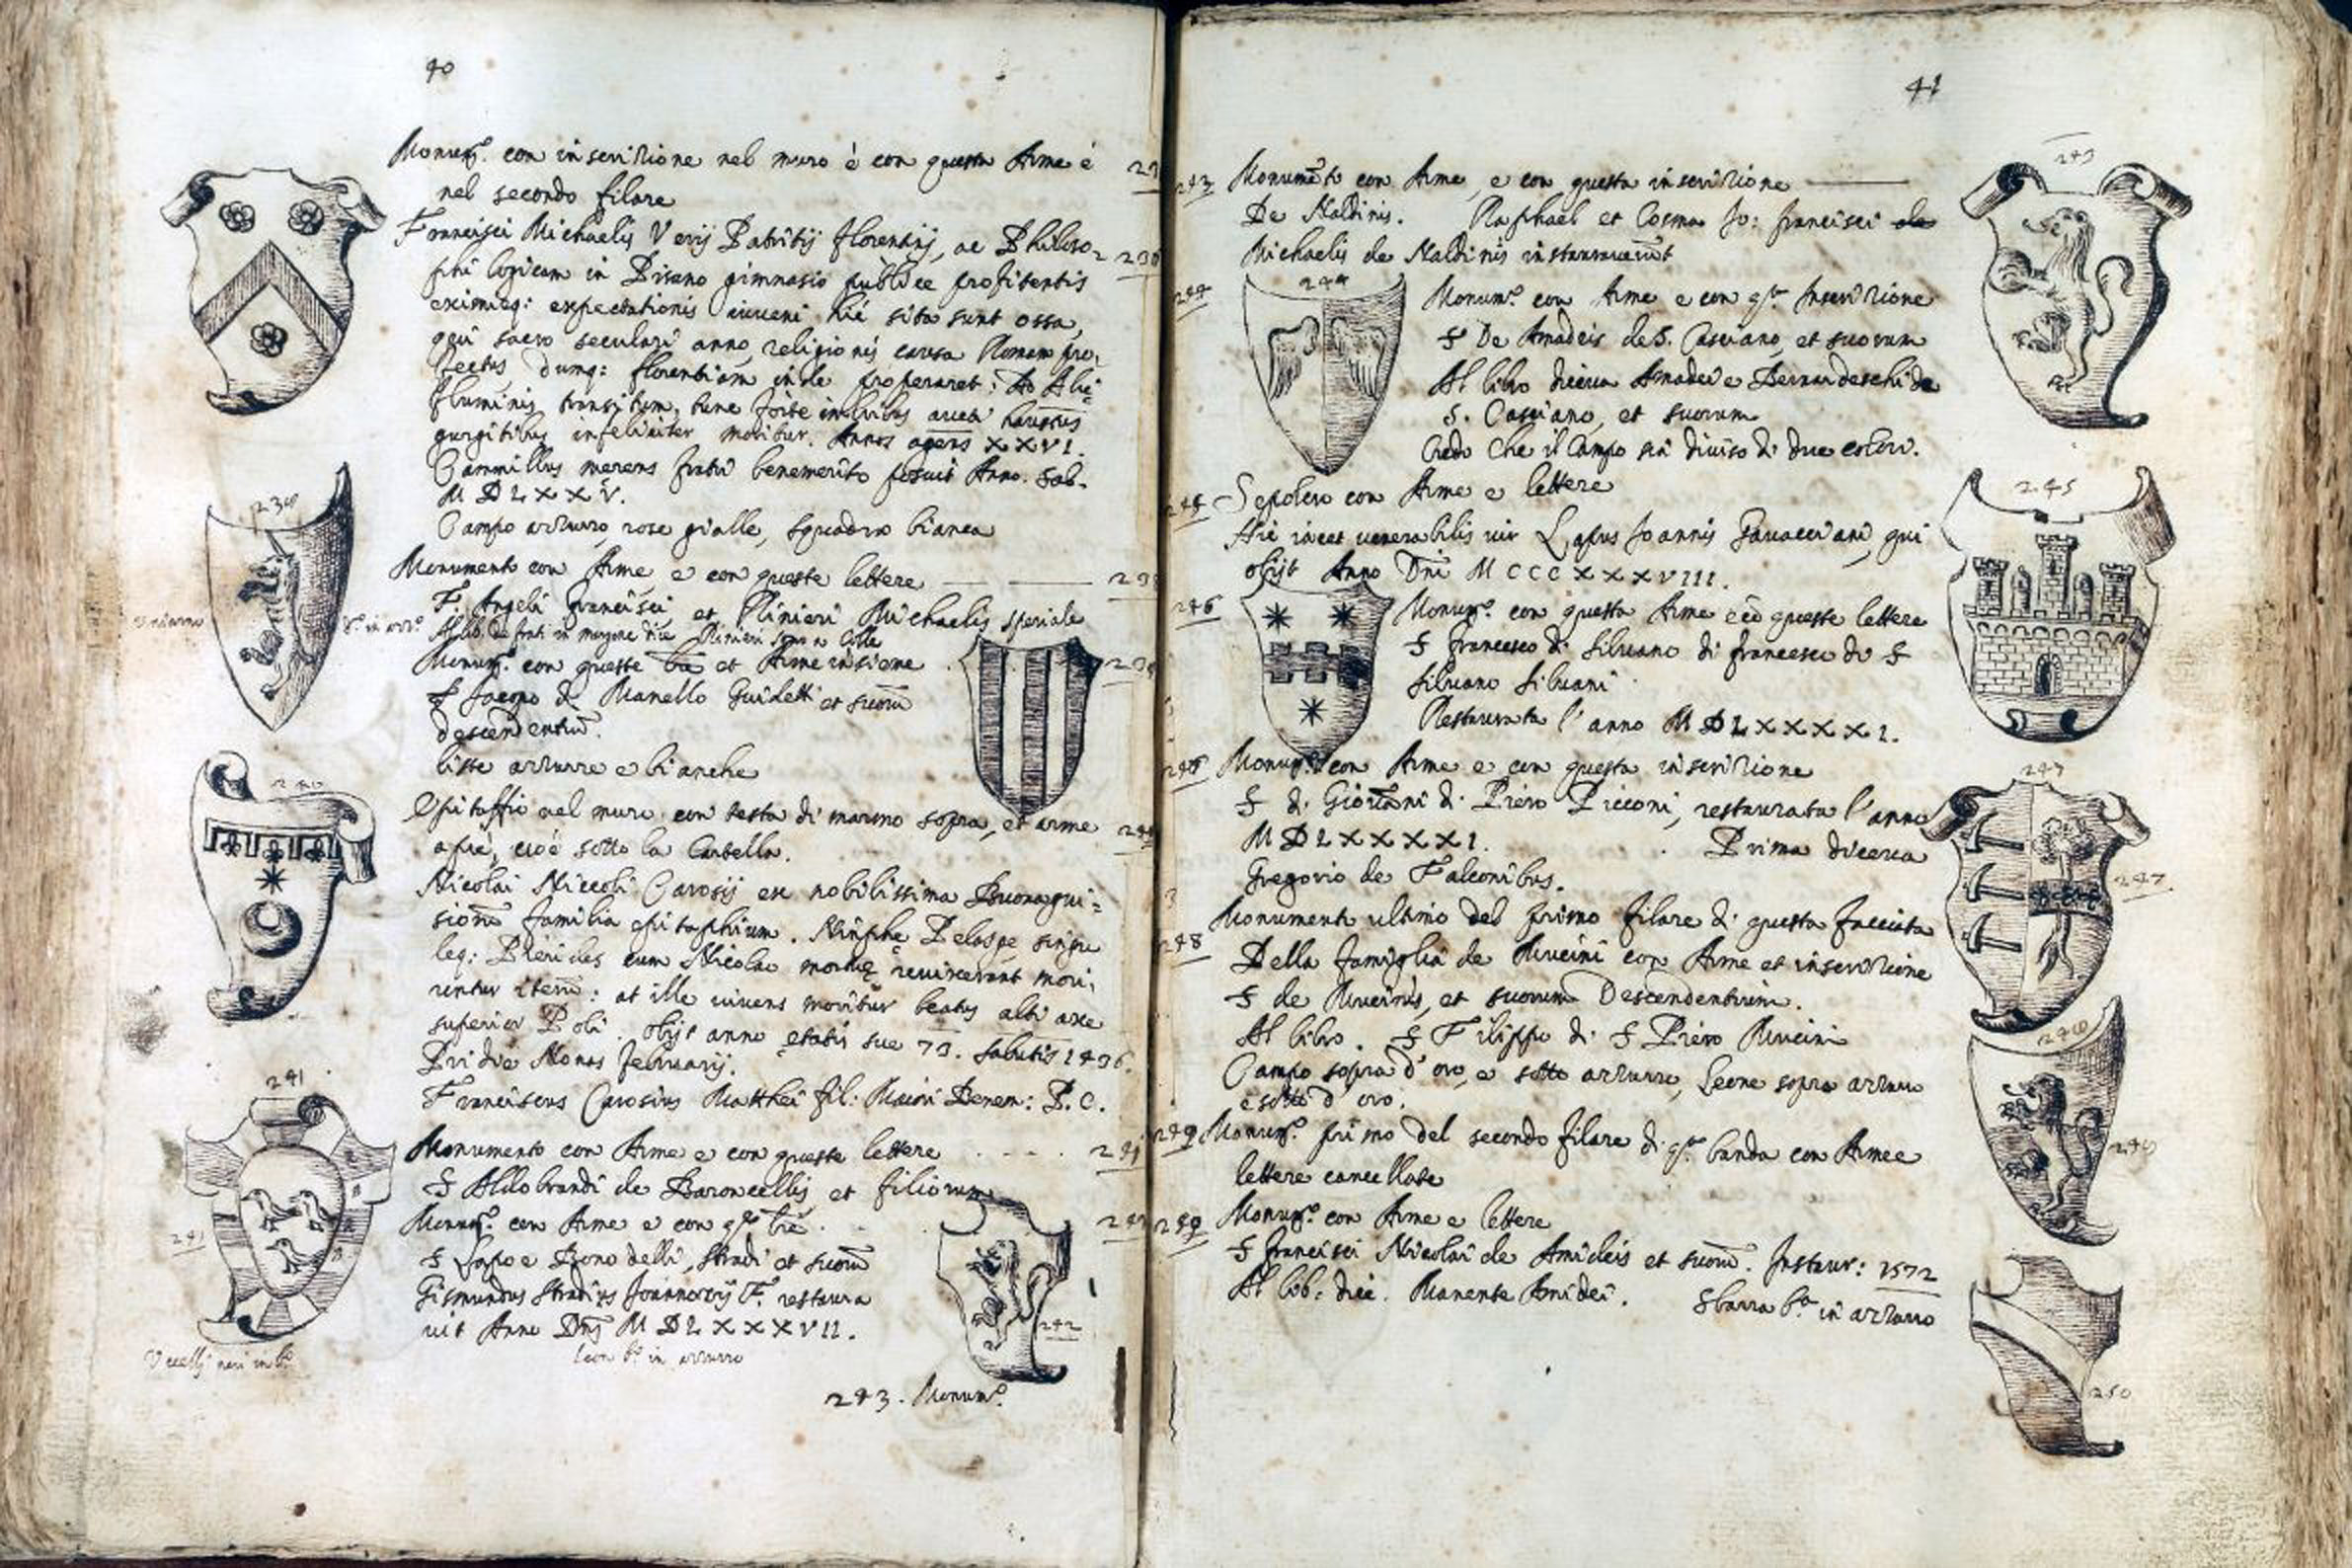 40
Monum.to con inscrizione nel muro è con questa Arme è
nel secondo filare
Francisci Michaelis Verij Patritij florentij, ac Philoso-
phi logicam in Pisano gimnasio publice profitentis
eximieq: expectationis iuveni hic sita sunt ossa,
qui sacro seculari anno religionis causa Romam pro,
fectus dumq: florentiam inde properaret:
fluminis transitum, tunc forte imbribus aucti haustus
gurgitibus infeliciter moritur. Annos agens XXVI.
Cammillus merens fratri benemerito posuit Anno. Sal.
MDLXXV.
Campo azzurro, rose gialle, squadra bianca
239
Monumento con Arme e con queste lettere
F. Angeli Francisci et Rinieri Michaelis speziale
Al lib. de frati in margine dice Rinieri
Monum.to con queste lre et Arme insieme
S Jacopo di Manello Guidetti et suorū
descendentiū.
liste azzurre e bianche
240
Epitaffio nel muro con testa di marmo sopra, et arme
a pie, cioè sotto la Cartella.
Nicolai Niccoli Carosij ex nobilissima Buonagui=
sione familia epitaphium. Ninphe Pelasge singu
leq: Pierides cum Nicolao revixerant mori,
untur iterū: at ille vivens moritur beatus alti axe
superior Poli. obijt anno etatis sue 73. Salutis 1436.
Pridie Nonas februarij.
Franciscus Carosius Matthei fil: Maiori Benem: P.C.
241
Monumento con Arme e con queste lettere
241
S Aldobrandi de Baroncellis et filiorum
241
Monum.to con Arme e con q.te lre
S Lapo e Bono delli Stradi et suorū
Gismundus Stradius F. restaura
vit Anno Dnj MDLXXXVII.
242
Uccelli neri in b.o
Leon b.o in azzurro
243. Monum.to
41
243
243
Monumēto con Arme, e con questa inscrizione
De Naldinis. Raphael et Cosma Jo: francisci de
Michaelis de Naldinis instauraverūt
244
244
Monum.to con Arme e con q.ta Inscrizione
S De Amadeis de S. Casciano, et suorum
Al libro diceva Amadei e Bernardeschi de
S. Casciano, et suorum
Credo che il Campo sia diviso di due colori.
245
Sepolcro con Arme e lettere
245
Hic iacet venerabilis vir Lapus Joannis qui
obijt Anno Dni MCCCXXXVIII.
246
Monum.to con questa Arme e cō queste lettere
S francesco di Silvano di francesco di S
Silvano Silvani
Restaurata l'anno MDLXXXXI.
Monum.to con Arme e con questa inscrizione
247
S di Giovanni di Piero Picconi, restaurata l'anno
MDLXXXXI. Prima diceva
247
Gregorio de Falconibus.
Monumento ultimo del primo filare di questa facciata
248
Della famiglia de Ricini con Arme et inscrizione
S de Ricinis, et suorum Descendentium.
Al libro. S Filippo di S Piero Ricini
Campo sopra d'oro, e sotto azzurro, Leone sopra azzurro
e sotto d'oro.
249
Monum.to primo del secondo filare di q.ta banda con Arme e
lettere cancellate
Monum.to con Arme e lettere
S francisci Nicolai de Amideis et suorū. Instaur: 1572
Al lib: dice. Manente Amidei. Sbarra b.a in azzurro
250